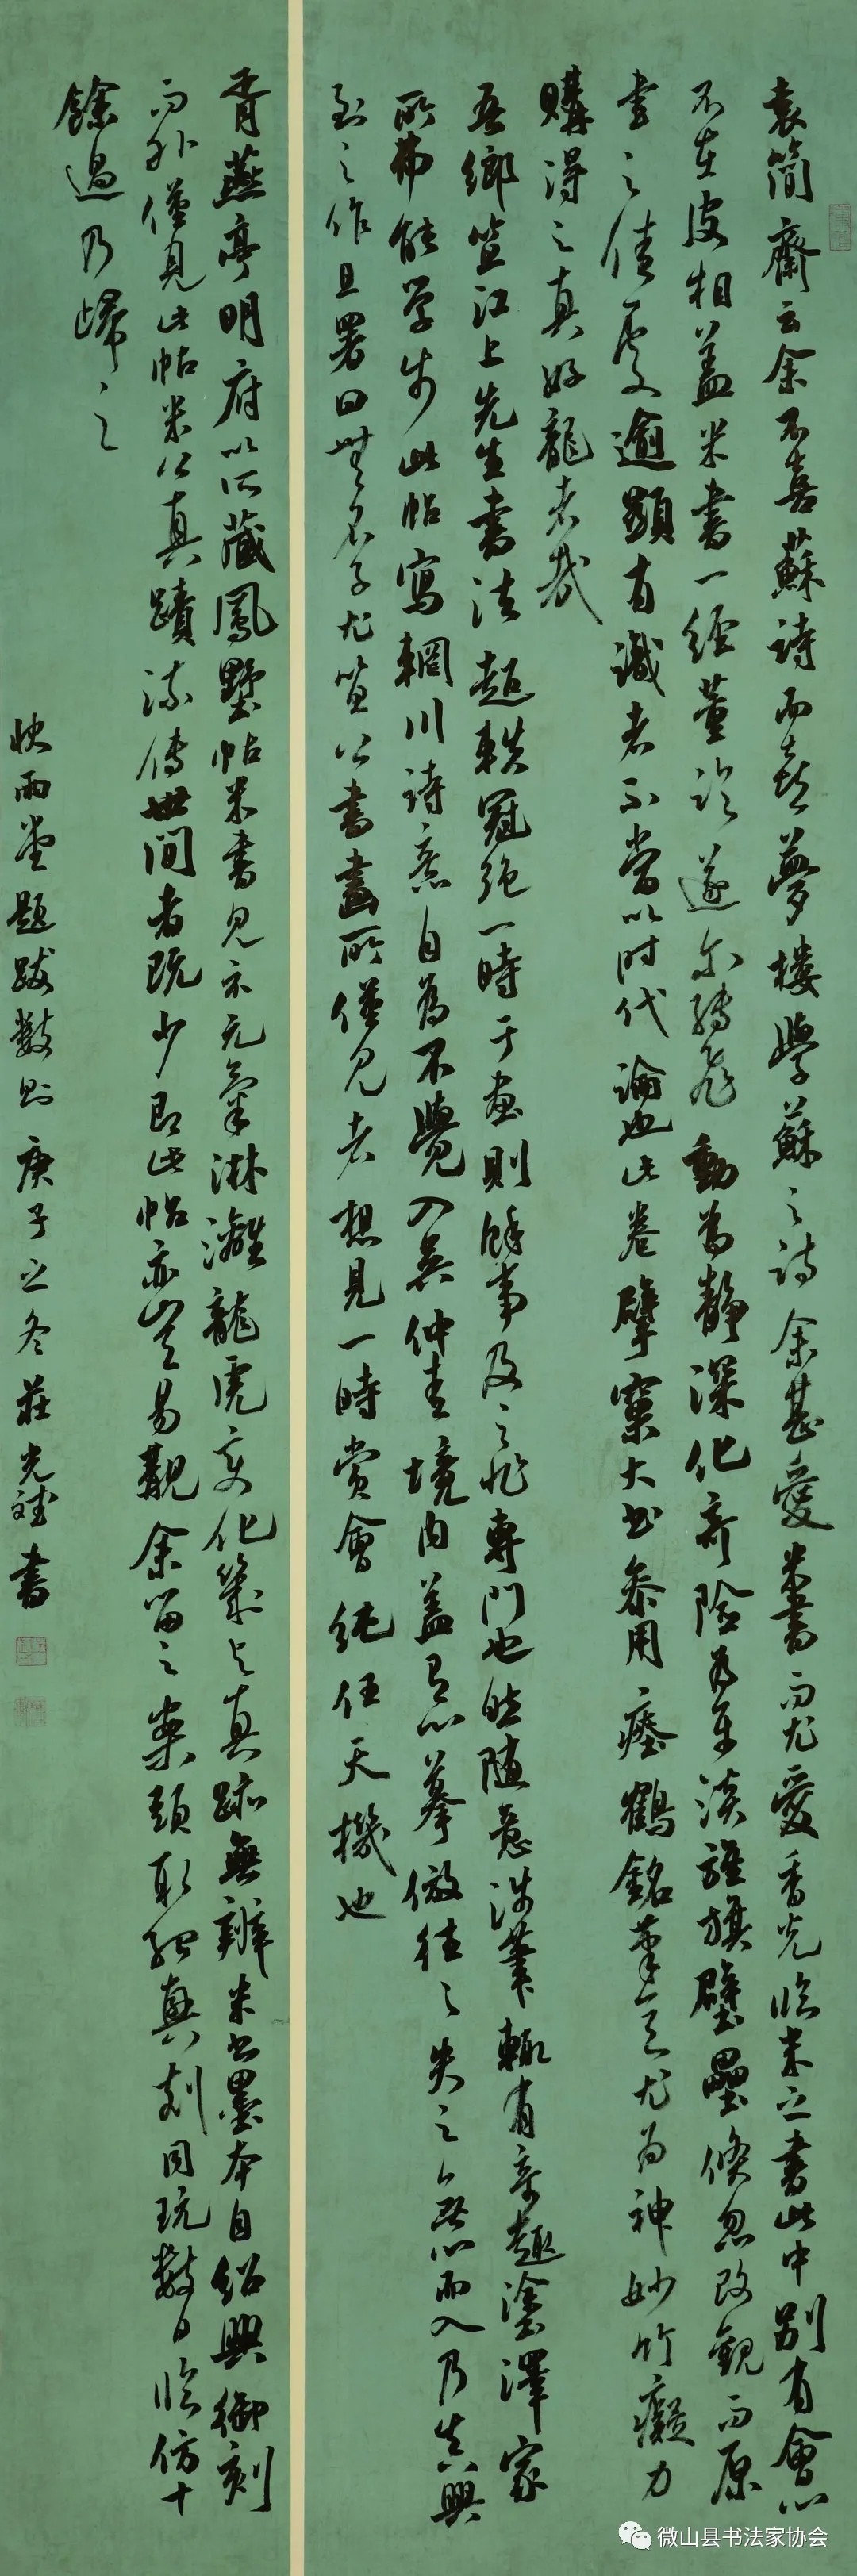 袁簡齋云余不喜蘇詩而喜夢樓學蘇之詩余甚愛米書而尤愛香光臨米之書此中別有會心
不在皮相蓋米書一經董臨遂爾轉飛動為靜深化奇險為平淡旌旗壁壘倏忽改觀而原
書之佳處逾顯有識者不當以時代論也此卷擘窠大書參用瘞鶴銘筆意尤為神妙竹癡力
購得之真好龍者哉
吾鄉笪江上先生書法超軼冠絕一時于畫則餘事及之非專門也然隨意涉筆輒有奇趣塗澤家
所弗能學步此帖寫輞川詩意自為不覺入吳仲圭境內蓋有心摹倣往之失之無心而入乃真興
到之作且署曰無名子尤笪公書畫所僅見者想見一時賞會純任天機也
胥燕亭明府以所藏鳳墅帖米書見示元氣淋灕龍虎變化幾與真跡無辨米書墨本自紹興御刻
而外僅見此帖米公真蹟流傳世間者既少即此帖亦豈易觀余留之案頭取
真刻同玩數日臨仿十
餘過乃歸之
快雨堂題跋數則庚子之冬莊光
書
微山县书法家协会